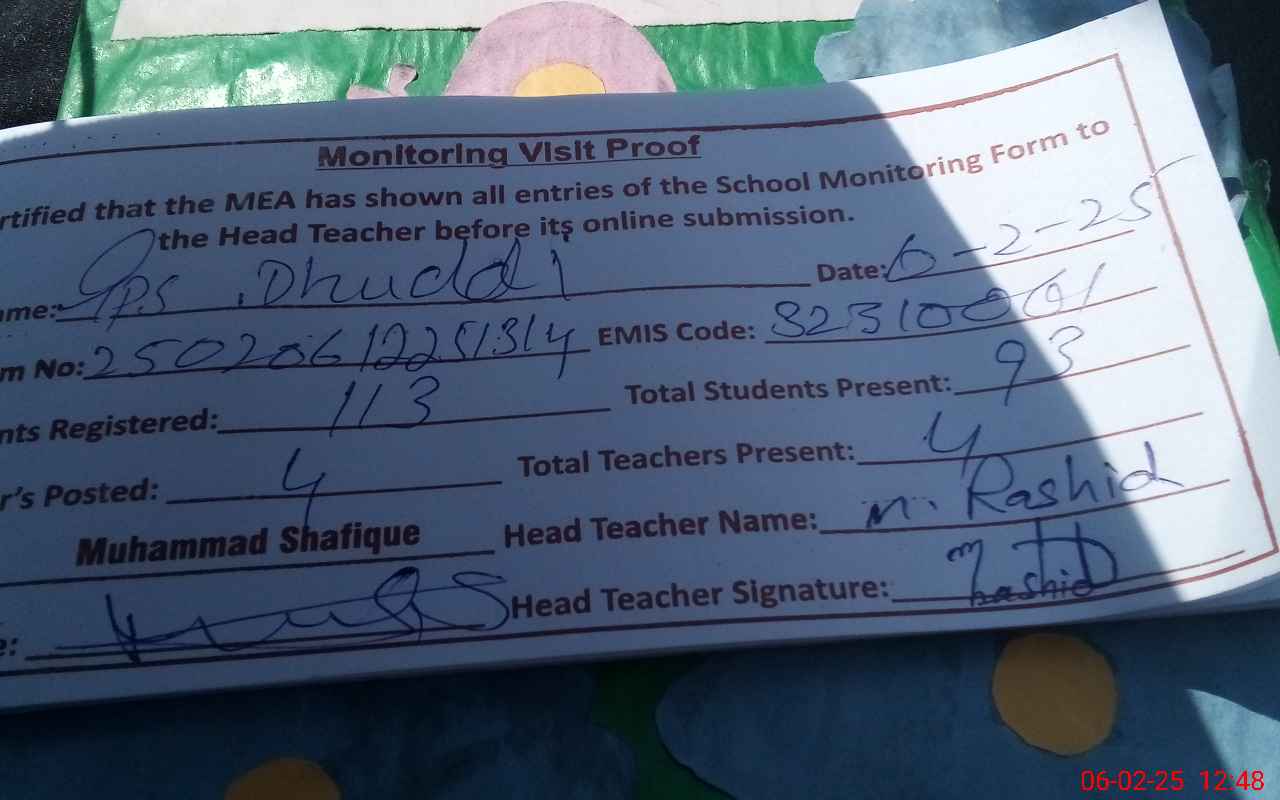 Monitoring Visit Proof
rtified that the MEA has shown all entries of the School Monitoring Form to
the Head Teacher before its online submission.
ame: Gps Dhuddi Date: 6-2-25
m No: 25020612251314 EMIS Code: 32310061
nts Registered: 113 Total Students Present: 93
r's Posted: 4 Total Teachers Present: 4
Muhammad Shafique Head Teacher Name: M. Rashid
e: Head Teacher Signature: M Rashid
06-02-25 12:48